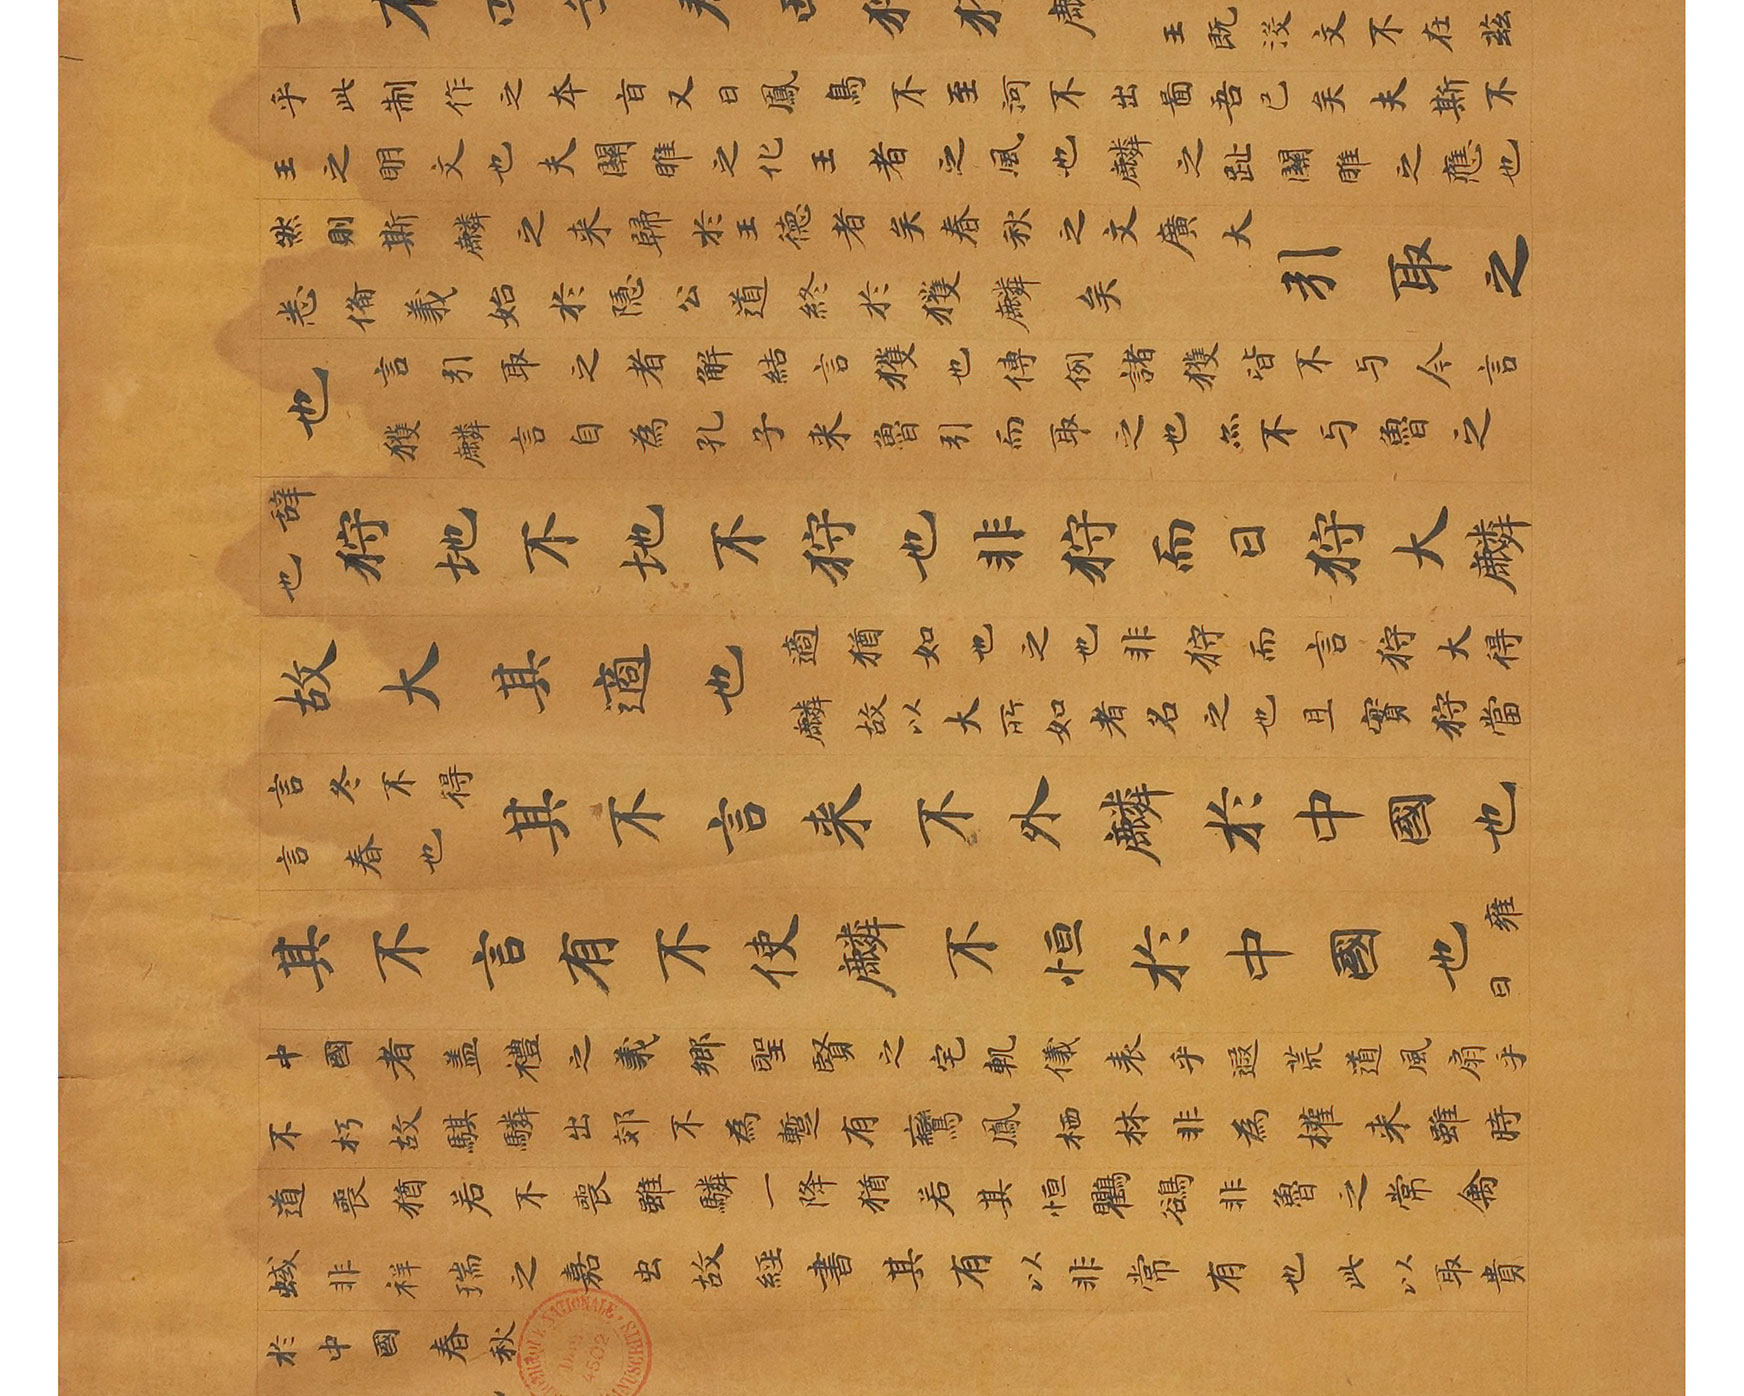 王既没文不在茲
乎此制作之本旨又曰鳳鳥不至河不出圖吾已矣夫斯不
王之明文也夫關雎之化王者之風也麟之趾關雎之應也
然則斯麟之来歸於王德者矣春秋之文廣大
悉俻義始於隱公道終於獲麟矣
引取之
也
言引取之者解結言獲也傳例諸獲皆不与今言
獲麟言自為孔子来魯引而取之也亦不与魯之
辞也
狩地不地不狩也非狩而曰狩大麟
故大其適也
適猶如也之也非狩而言狩大得
麟故以大所如者名之也且實狩當
言冬不得
言春也
其不言来不外麟於中國也
其不言有不使麟不恒於中國也
雍曰
中國者盖禮之義郷聖賢之宅軌儀表乎遐荒道風扇乎
不朽故騏驎出郊不為蹔有鸞鳳栖林非為權来雖時
道喪猶若不喪雖驎一降猶若其恒鸜鵒非魯之常禽
蜮非祥瑞之嘉虫故經書其有以非常有也此以取貴
於中國春秋
NATIONALE
4502